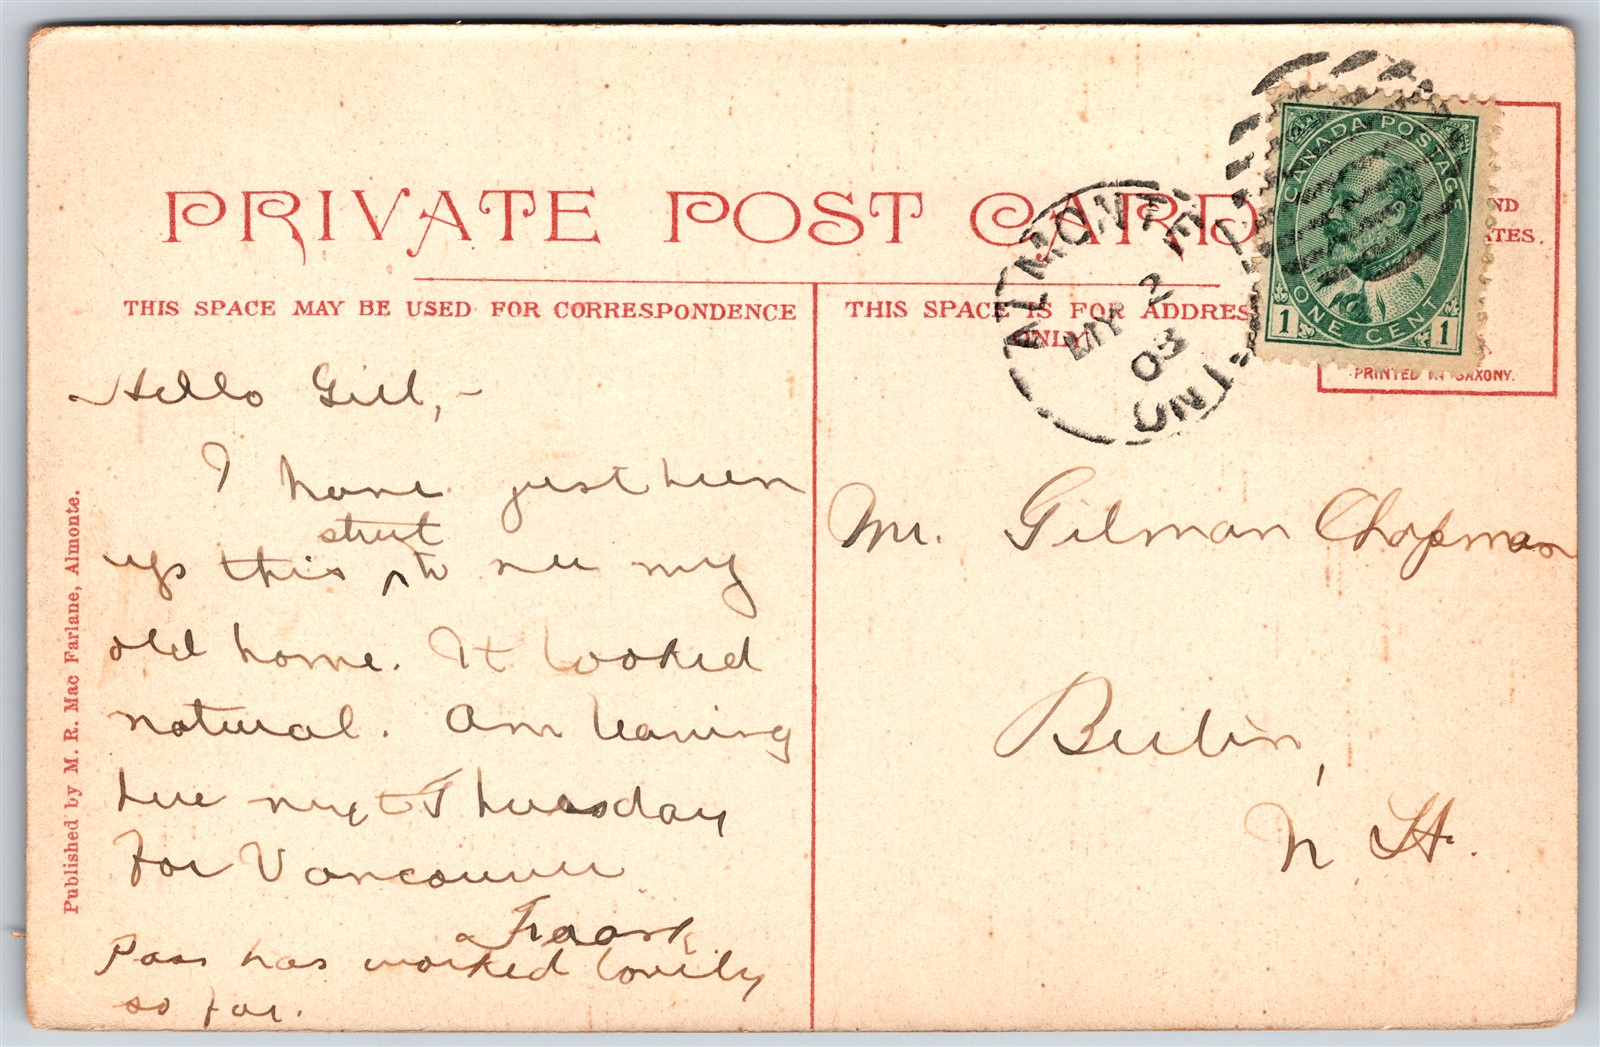 PRIVATE POST CARD
THIS SPACE MAY BE USED FOR CORRESPONDENCE
THIS SPACE IS FOR ADDRESS
ONLY
CANADA POSTAGE
ONE CENT
1 1
ND
TES.
PRINTED IN SAXONY.
ALMONTE
MY 2
03
ONT
Hello Gill,-
I have just been
street
up this ^ to see my
old home. It looked
natural. Am leaving
here next Thursday
for Vancouver
Frank
Pass has worked lovely
so far.
Mr. Gilman Chapman
Berlin,
N. H.
Published by M. R. Mac Farlane, Almonte.